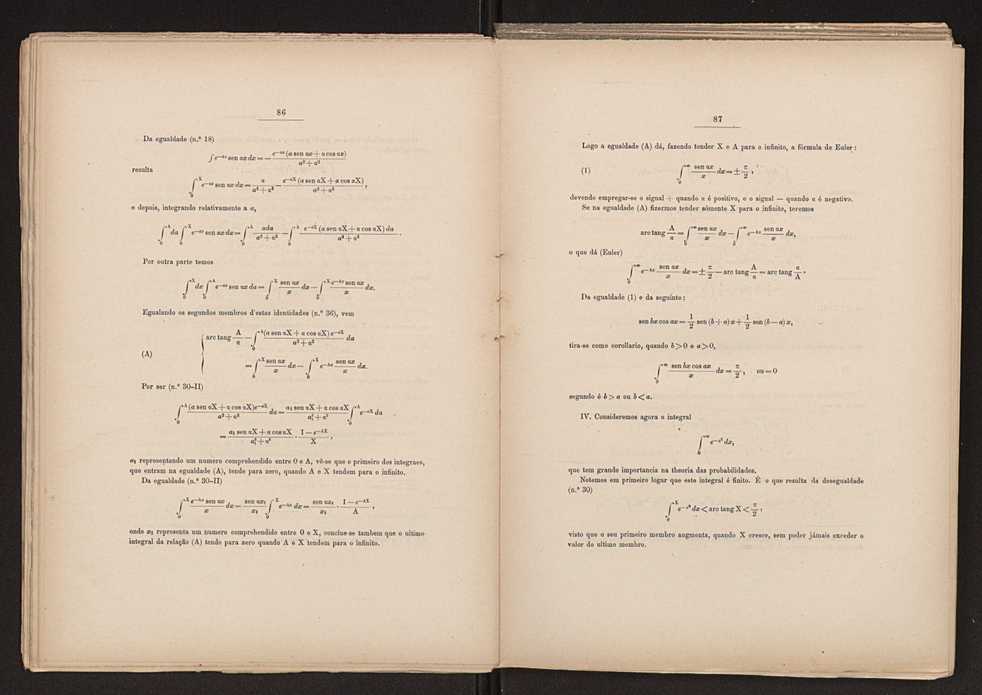 86
Da egualdade (n.º 18)
∫ e^{-ax} sen αx dx = − e^{-ax} (a sen αx + α cos αx) / (a² + α²)
resulta
∫_0^X e^{-ax} sen αx dx = α / (a² + α²) − e^{-aX} (a sen αX + α cos αX) / (a² + α²),
e depois, integrando relativamente a a,
∫_0^A da ∫_0^X e^{-ax} sen αx dx = ∫_0^A α da / (a² + α²) − ∫_0^A e^{-aX} (a sen αX + α cos αX) da / (a² + α²).
Por outra parte temos
∫_0^X dx ∫_0^A e^{-ax} sen αx da = ∫_0^X (sen αx / x) dx − ∫_0^X (e^{-Ax} sen αx / x) dx.
Egualando os segundos membros d'estas identidades (n.º 36), vem
(A) { arc tang A/α − ∫_0^A ((a sen αX + α cos αX) e^{-aX} / (a² + α²)) da
= ∫_0^X (sen αx / x) dx − ∫_0^X e^{-Ax} (sen αx / x) dx.
Por ser (n.º 30–II)
∫_0^A ((a sen αX + α cos αX) e^{-aX} / (a² + α²)) da = ((a₁ sen αX + α cos αX) / (a₁² + α²)) ∫_0^A e^{-aX} da
= ((a₁ sen αX + α cos αX) / (a₁² + α²)) · (1 − e^{-AX}) / X,
a₁ representando um numero comprehendido entre 0 e A, vê-se que o primeiro dos integraes,
que entram na egualdade (A), tende para zero, quando A e X tendem para o infinito.
Da egualdade (n.º 30–II)
∫_0^X (e^{-Ax} sen αx / x) dx = (sen αx₁ / x₁) ∫_0^X e^{-Ax} dx = (sen αx₁ / x₁) · (1 − e^{-AX}) / A,
onde x₁ representa um numero comprehendido entre 0 e X, conclue-se tambem que o ultimo
integral da relação (A) tende para zero quando A e X tendem para o infinito.
87
Logo a egualdade (A) dá, fazendo tender X e A para o infinito, a fórmula de Euler:
(1) ∫_0^∞ (sen αx / x) dx = ± π/2,
devendo empregar-se o signal + quando α é positivo, e o signal — quando α é negativo.
Se na egualdade (A) fizermos tender sómente X para o infinito, teremos
arc tang A/α = ∫_0^∞ (sen αx / x) dx − ∫_0^∞ e^{-Ax} (sen αx / x) dx,
o que dá (Euler)
∫_0^∞ e^{-Ax} (sen αx / x) dx = ± π/2 − arc tang A/α = arc tang α/A.
Da egualdade (1) e da seguinte:
sen bx cos ax = 1/2 sen (b + a) x + 1/2 sen (b — a) x,
tira-se como corollario, quando b > 0 e a > 0,
∫_0^∞ (sen bx cos ax / x) dx = π/2, ou = 0
segundo é b > a ou b < a.
IV. Consideremos agora o integral
∫_0^∞ e^{-x²} dx,
que tem grande importancia na theoria das probabilidades.
Notemos em primeiro logar que este integral é finito. É o que resulta da desegualdade
(n.º 30)
∫_0^X e^{-x²} dx < arc tang X < π/2,
visto que o seu primeiro membro augmenta, quando X cresce, sem poder jámais exceder o
valor do ultimo membro.